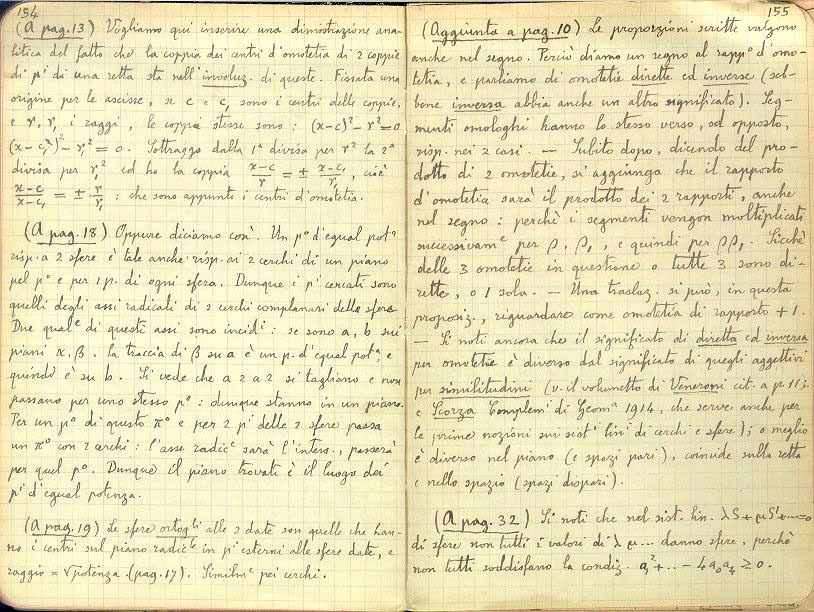 154
(A pag. 13) Vogliamo qui inserire una dimostrazione ana-
litica del fatto che la coppia dei centri d'omotetia di 2 coppie
di pⁱ di una retta sta nell'involuz. di queste. Fissata una
origine per le ascisse, se c e c₁ sono i centri delle coppie,
e r, r₁ i raggi, le coppie stesse sono : (x-c)² - r² = 0
(x-c₁)² - r₁² = 0. Sottraggo dalla 1ª divisa per r² la 2ª
divisa per r₁² ed ho la coppia (x-c)/r = ± (x-c₁)/r₁, cioè
(x-c)/(x-c₁) = ± r/r₁ : che sono appunto i centri d'omotetia.
(A pag. 18) Oppure diciamo così. Un pº d'egual potª
risp. a 2 sfere è tale anche risp. ai 2 cerchi di un piano
pel pº e per 1 p. di ogni sfera. Dunque i pⁱ cercati sono
quelli degli assi radicali di 2 cerchi complanari delle sfere.
Due qualᵉ di questi assi sono incidⁱ : se sono a, b sui
piani α, β. la traccia di β su a è un p. d'egual potª e
quindi è su b. Si vede che a 2 a 2 si tagliano e non
passano per uno stesso pº : dunque stanno in un piano.
Per un pº di questo πº e per 2 pⁱ delle 2 sfere passa
un πº con 2 cerchi : l'asse radicᵉ sarà l'inters., passerà
per quel pº. Dunque il piano trovato è il luogo dei
pⁱ d'egual potenza.
(A pag. 19) Le sfere ortogˡⁱ alle 2 date son quelle che han-
no i centri sul piano radicˡᵉ in pⁱ esterni alle sfere date, e
raggio = √potenza (pag. 17). Similmᵉ pei cerchi.
155
(Aggiunta a pag. 10) Le proporzioni scritte valgono
anche nel segno. Perciò diamo un segno al rappº d'omo-
tetia, e parliamo di omotetie dirette ed inverse (seb-
bene inversa abbia anche un altro significato). Seg-
menti omologhi hanno lo stesso verso, od opposto,
risp. nei 2 casi. — Subito dopo, dicendo del pro-
dotto di 2 omotetie, si aggiunga che il rapporto
d'omotetia sarà il prodotto dei 2 rapporti, anche
nel segno : perchè i segmenti vengon moltiplicati
successivamᵉ per β, β₁, e quindi per ββ₁. Sicchè
delle 3 omotetie in questione o tutte 3 sono di-
rette, o 1 sola. — Una traslaz. si può, in questa
proposiz., riguardare come omotetia di rapporto + 1.
— Si noti ancora che il significato di diretta ed inversa
per omotetie è diverso dal significato di quegli aggettivi
per similitudini (v. il volumetto di Veneroni cit. a p. 11;
e Scorza Complemⁱ di Geomª 1914, che serve anche per
le prime nozioni sui sistⁱ linⁱ di cerchi e sfere) ; o meglio
è diverso nel piano (e spazi pari), coincide sulla retta
e nello spazio (spazi dispari).
(A pag. 32) Si noti che nel sist. lin. λS + μS' + ... = 0
di sfere non tutti i valori di λ μ ... danno sfere, perchè
non tutti soddisfano la condiz. a₁² + .. - 4a₀a₄ ≥ 0.